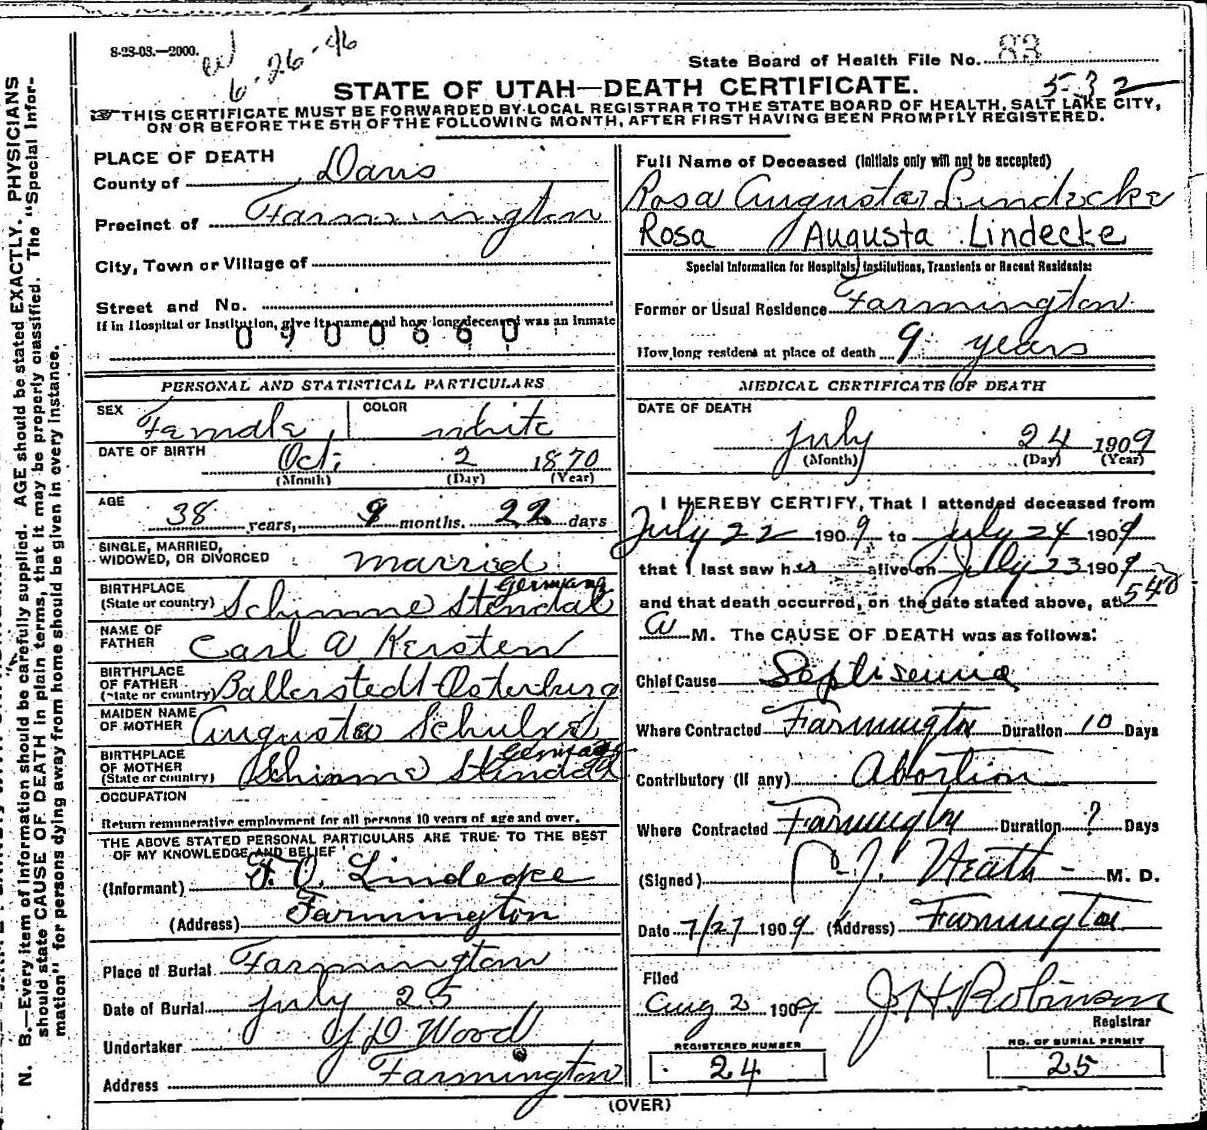 8-23-03.—2000.
6-26-46
State Board of Health File No. 83
STATE OF UTAH—DEATH CERTIFICATE.
5-32
THIS CERTIFICATE MUST BE FORWARDED BY LOCAL REGISTRAR TO THE STATE BOARD OF HEALTH, SALT LAKE CITY,
ON OR BEFORE THE 5TH OF THE FOLLOWING MONTH, AFTER FIRST HAVING BEEN PROMPTLY REGISTERED.
PLACE OF DEATH
County of Davis
Precinct of Farmington
City, Town or Village of
Street and No.
If in Hospital or Institution, give its name and how long deceased was an Inmate
0900660
PERSONAL AND STATISTICAL PARTICULARS
SEX Female COLOR white
DATE OF BIRTH Oct. 2 1870
(Month) (Day) (Year)
AGE 38 years, 9 months. 22 days
SINGLE, MARRIED,
WIDOWED, OR DIVORCED married
BIRTHPLACE Germany
(State or country) Schinne Stendal
NAME OF
FATHER Carl A Kersten
BIRTHPLACE
OF FATHER
(State or country) Ballerstedt Osterburg
MAIDEN NAME
OF MOTHER Augusta Schulze
BIRTHPLACE Germany
OF MOTHER
(State or country) Schinne Stendal
OCCUPATION
Return remunerative employment for all persons 10 years of age and over.
THE ABOVE STATED PERSONAL PARTICULARS ARE TRUE TO THE BEST
OF MY KNOWLEDGE AND BELIEF
(Informant) F. O. Lindecke
(Address) Farmington
Place of Burial Farmington
Date of Burial July 25
Undertaker Y D Wood
Address Farmington
Full Name of Deceased (Initials only will not be accepted)
Rosa Augusta Lindecke
Rosa Augusta Lindecke
Special Information for Hospitals, Institutions, Transients or Recent Residents:
Former or Usual Residence Farmington
How long resident at place of death 9 years
MEDICAL CERTIFICATE OF DEATH
DATE OF DEATH
July 24 1909
(Month) (Day) (Year)
I HEREBY CERTIFY, That I attended deceased from
July 22 1909 to July 24 1909
that I last saw her alive on July 23 1909
and that death occurred, on the date stated above, at 540
a M. The CAUSE OF DEATH was as follows:
Chief Cause Septisemia
Where Contracted Farmington Duration 10 Days
Contributory (if any) Abortion
Where Contracted Farmington Duration ? Days
(Signed) J. Heath M. D.
Date 7/27 1909 (Address) Farmington
Filed
Aug 2 1909 J H Robinson
Registrar
REGISTERED NUMBER
24
NO. OF BURIAL PERMIT
25
(OVER)
N. B.—Every item of information should be carefully supplied. AGE should be stated EXACTLY. PHYSICIANS
should state CAUSE OF DEATH in plain terms, that it may be properly classified. The "Special Infor-
mation" for persons dying away from home should be given in every instance.